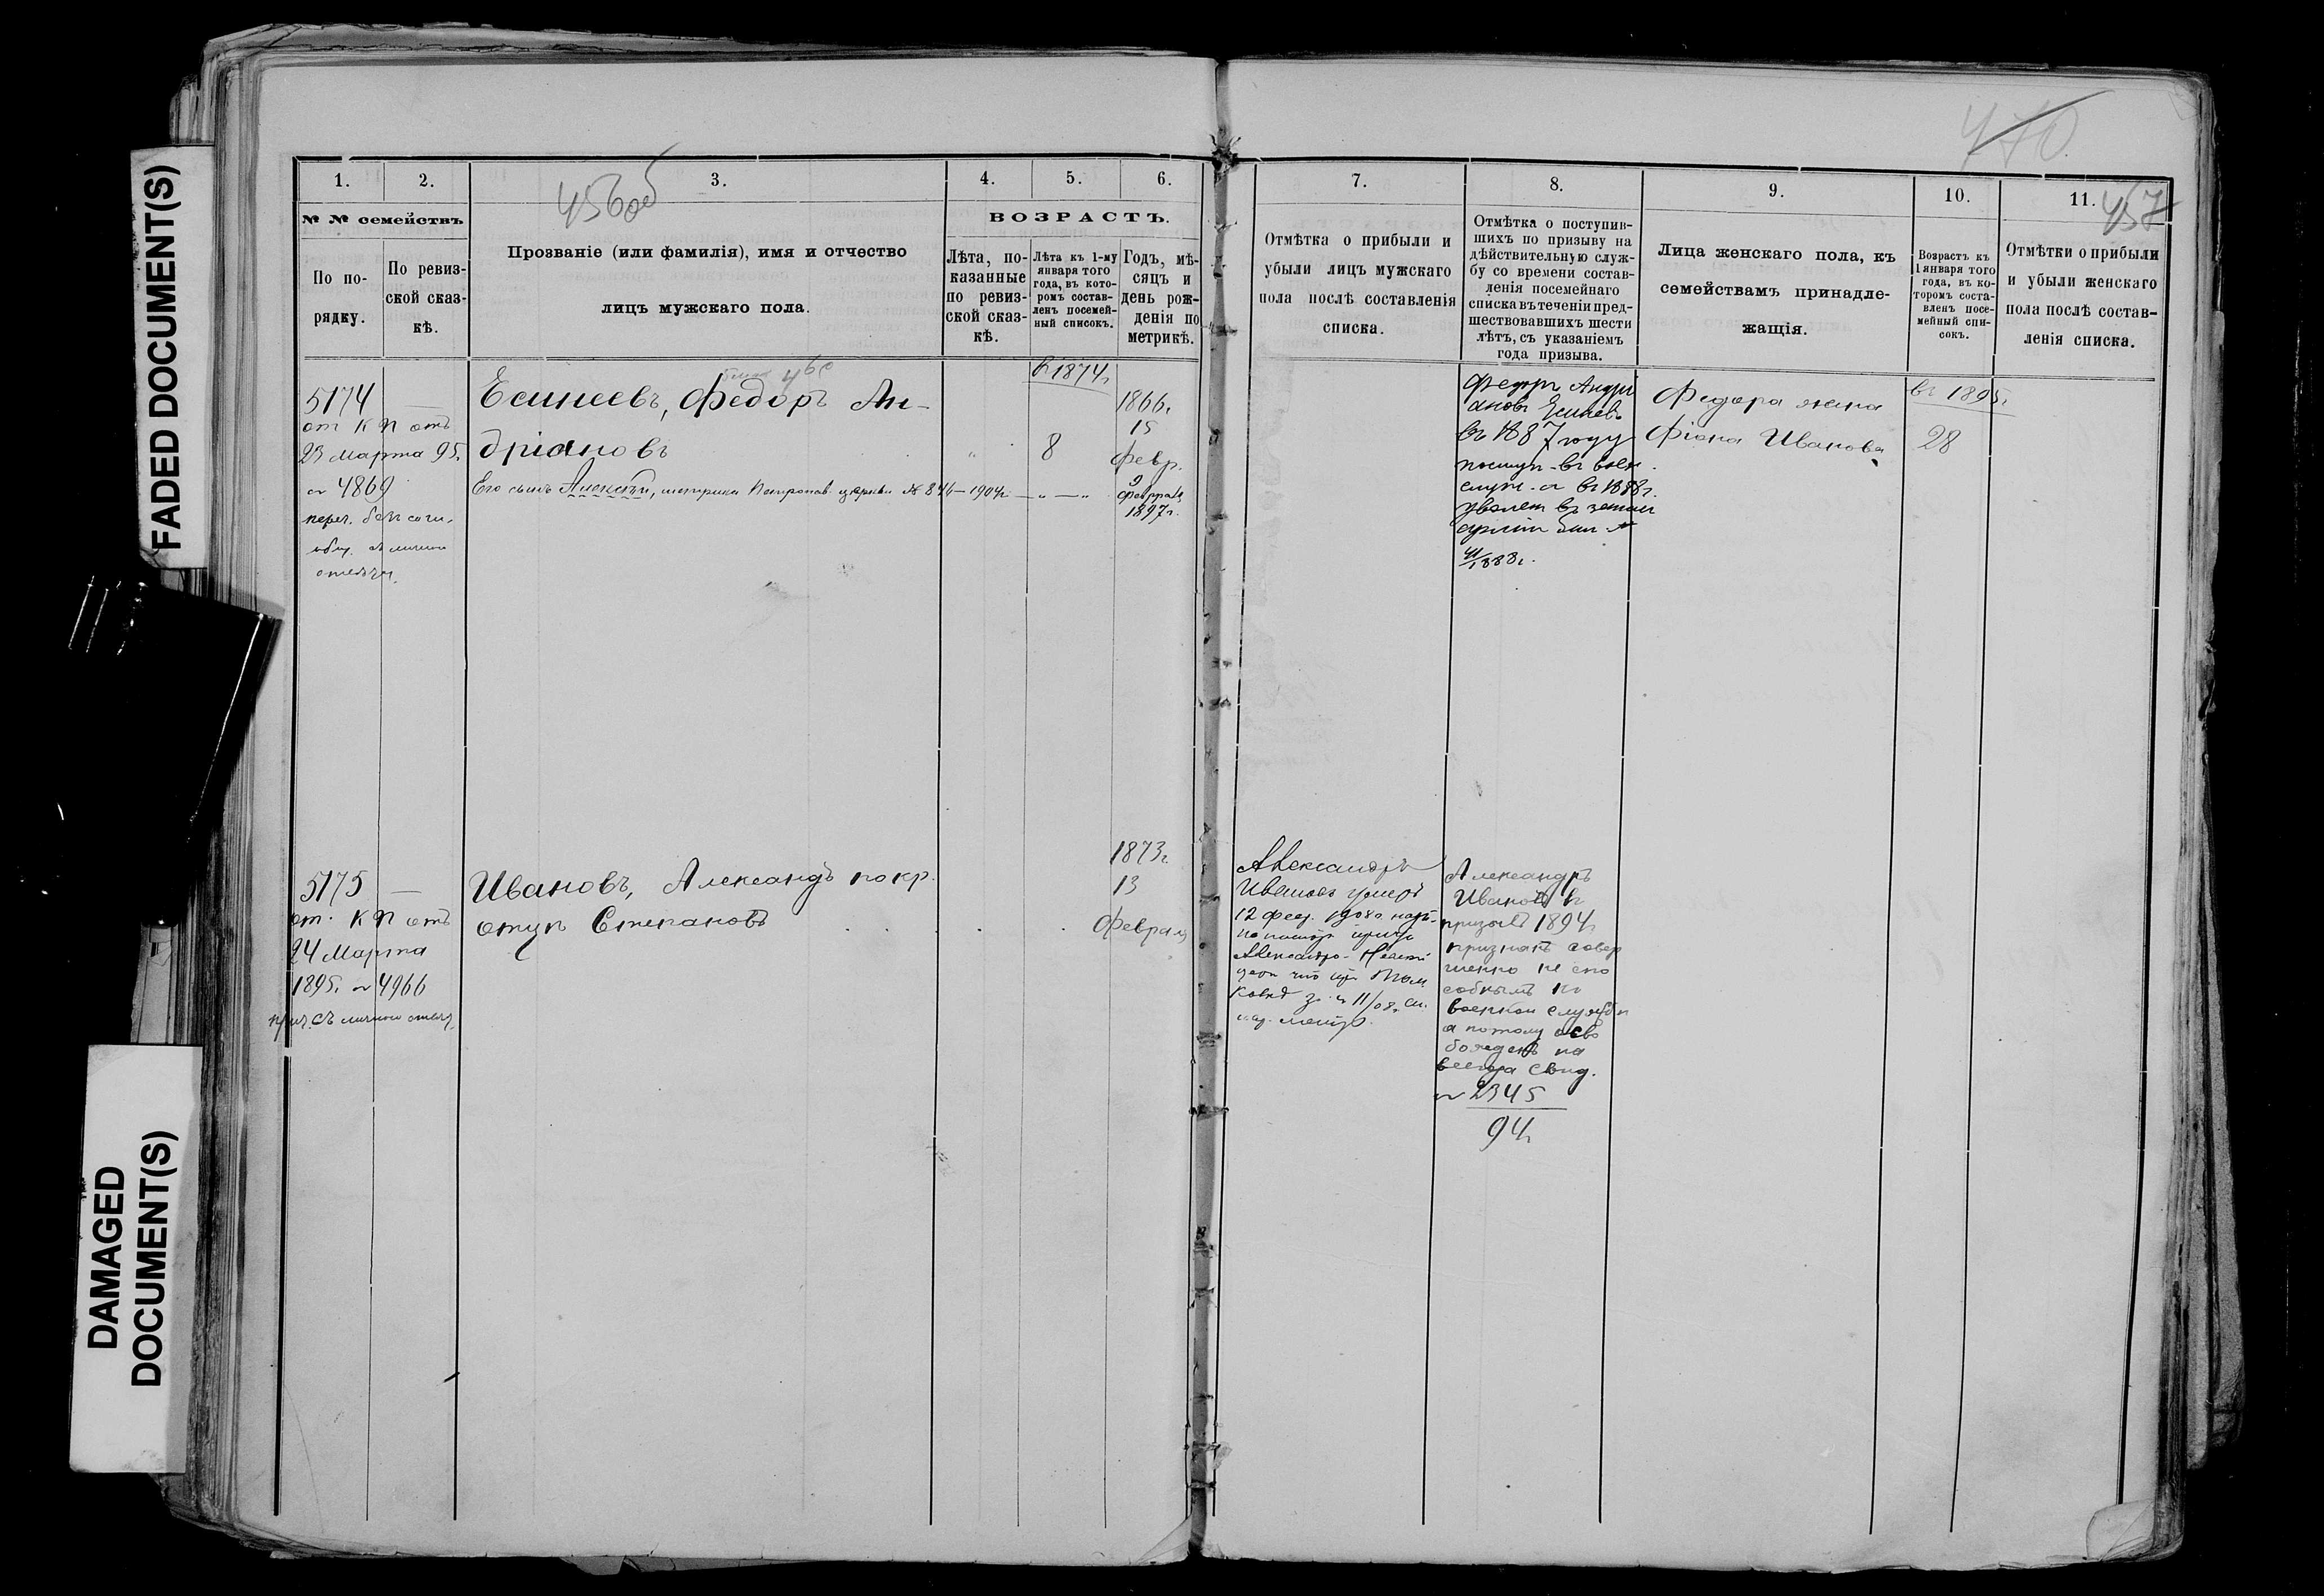 FADED DOCUMENT(S)
DAMAGED
DOCUMENT(S)
456об
1.
2.
3.
4.
5.
6.
№ № семействъ
По по-
рядку.
По ревиз-
ской сказ-
кѣ.
Прозваніе (или фамилія), имя и отчество
лицъ мужскаго пола.
ВОЗРАСТЪ.
Лѣта, по-
казанные
по ревиз-
ской сказ-
кѣ.
Лѣта къ 1-му
января того
года, въ кото-
ромъ состав-
ленъ посемей-
ный списокъ.
Годъ, мѣ-
сяцъ и
день рож-
денія по
метрикѣ.
5174 —
от К П отъ
23 Марта 95.
№ 4869
Есинеевъ, Федоръ Ан-
дріановъ
Его сынъ Алексѣй, метрика Петропав. церкви № 846 — 1904г. — „ — „
в 1874г.
8
1866г.
15
Февр.
9
Февраля
1897г.
5175 —
от. К П отъ
24 Марта
1895г. № 4966
прич. съ личною
Ивановъ, Александъ по кр.
отцу Степановъ
1873г.
13
Февраля
470
457
7.
8.
9.
10.
11.
Отмѣтка о прибыли и
убыли лицъ мужскаго
пола послѣ составленія
списка.
Отмѣтка о поступив-
шихъ по призыву на
дѣйствительную служ-
бу со времени состав-
ленія посемейнаго
списка въ теченіи пред-
шествовавшихъ шести
лѣтъ, съ указаніемъ
года призыва.
Лица женскаго пола, къ
семействамъ принадле-
жащія.
Возрастъ къ
1 января того
года, въ ко-
торомъ соста-
вленъ посе-
мейный спи-
сокъ.
Отмѣтки о прибыли
и убыли женскаго
пола послѣ состав-
ленія списка.
Федоръ Андрі
ановъ Есинеев
въ 1887 году
поступ. въ воен.
служ. а въ 1888г.
уволен въ запас
арміи бил. №
41/1888г.
Федора жена
Фіона Иванова
въ 1895г.
28
Александръ
Ивановъ умеръ
12 фев. 1908г.
Александро-
Александръ
Ивановъ въ
призывъ 1894г
признанъ совер
шенно не спо
собнымъ къ
военной службѣ
а потому осво
божденъ на
всегда свид.
№ 2345
94г